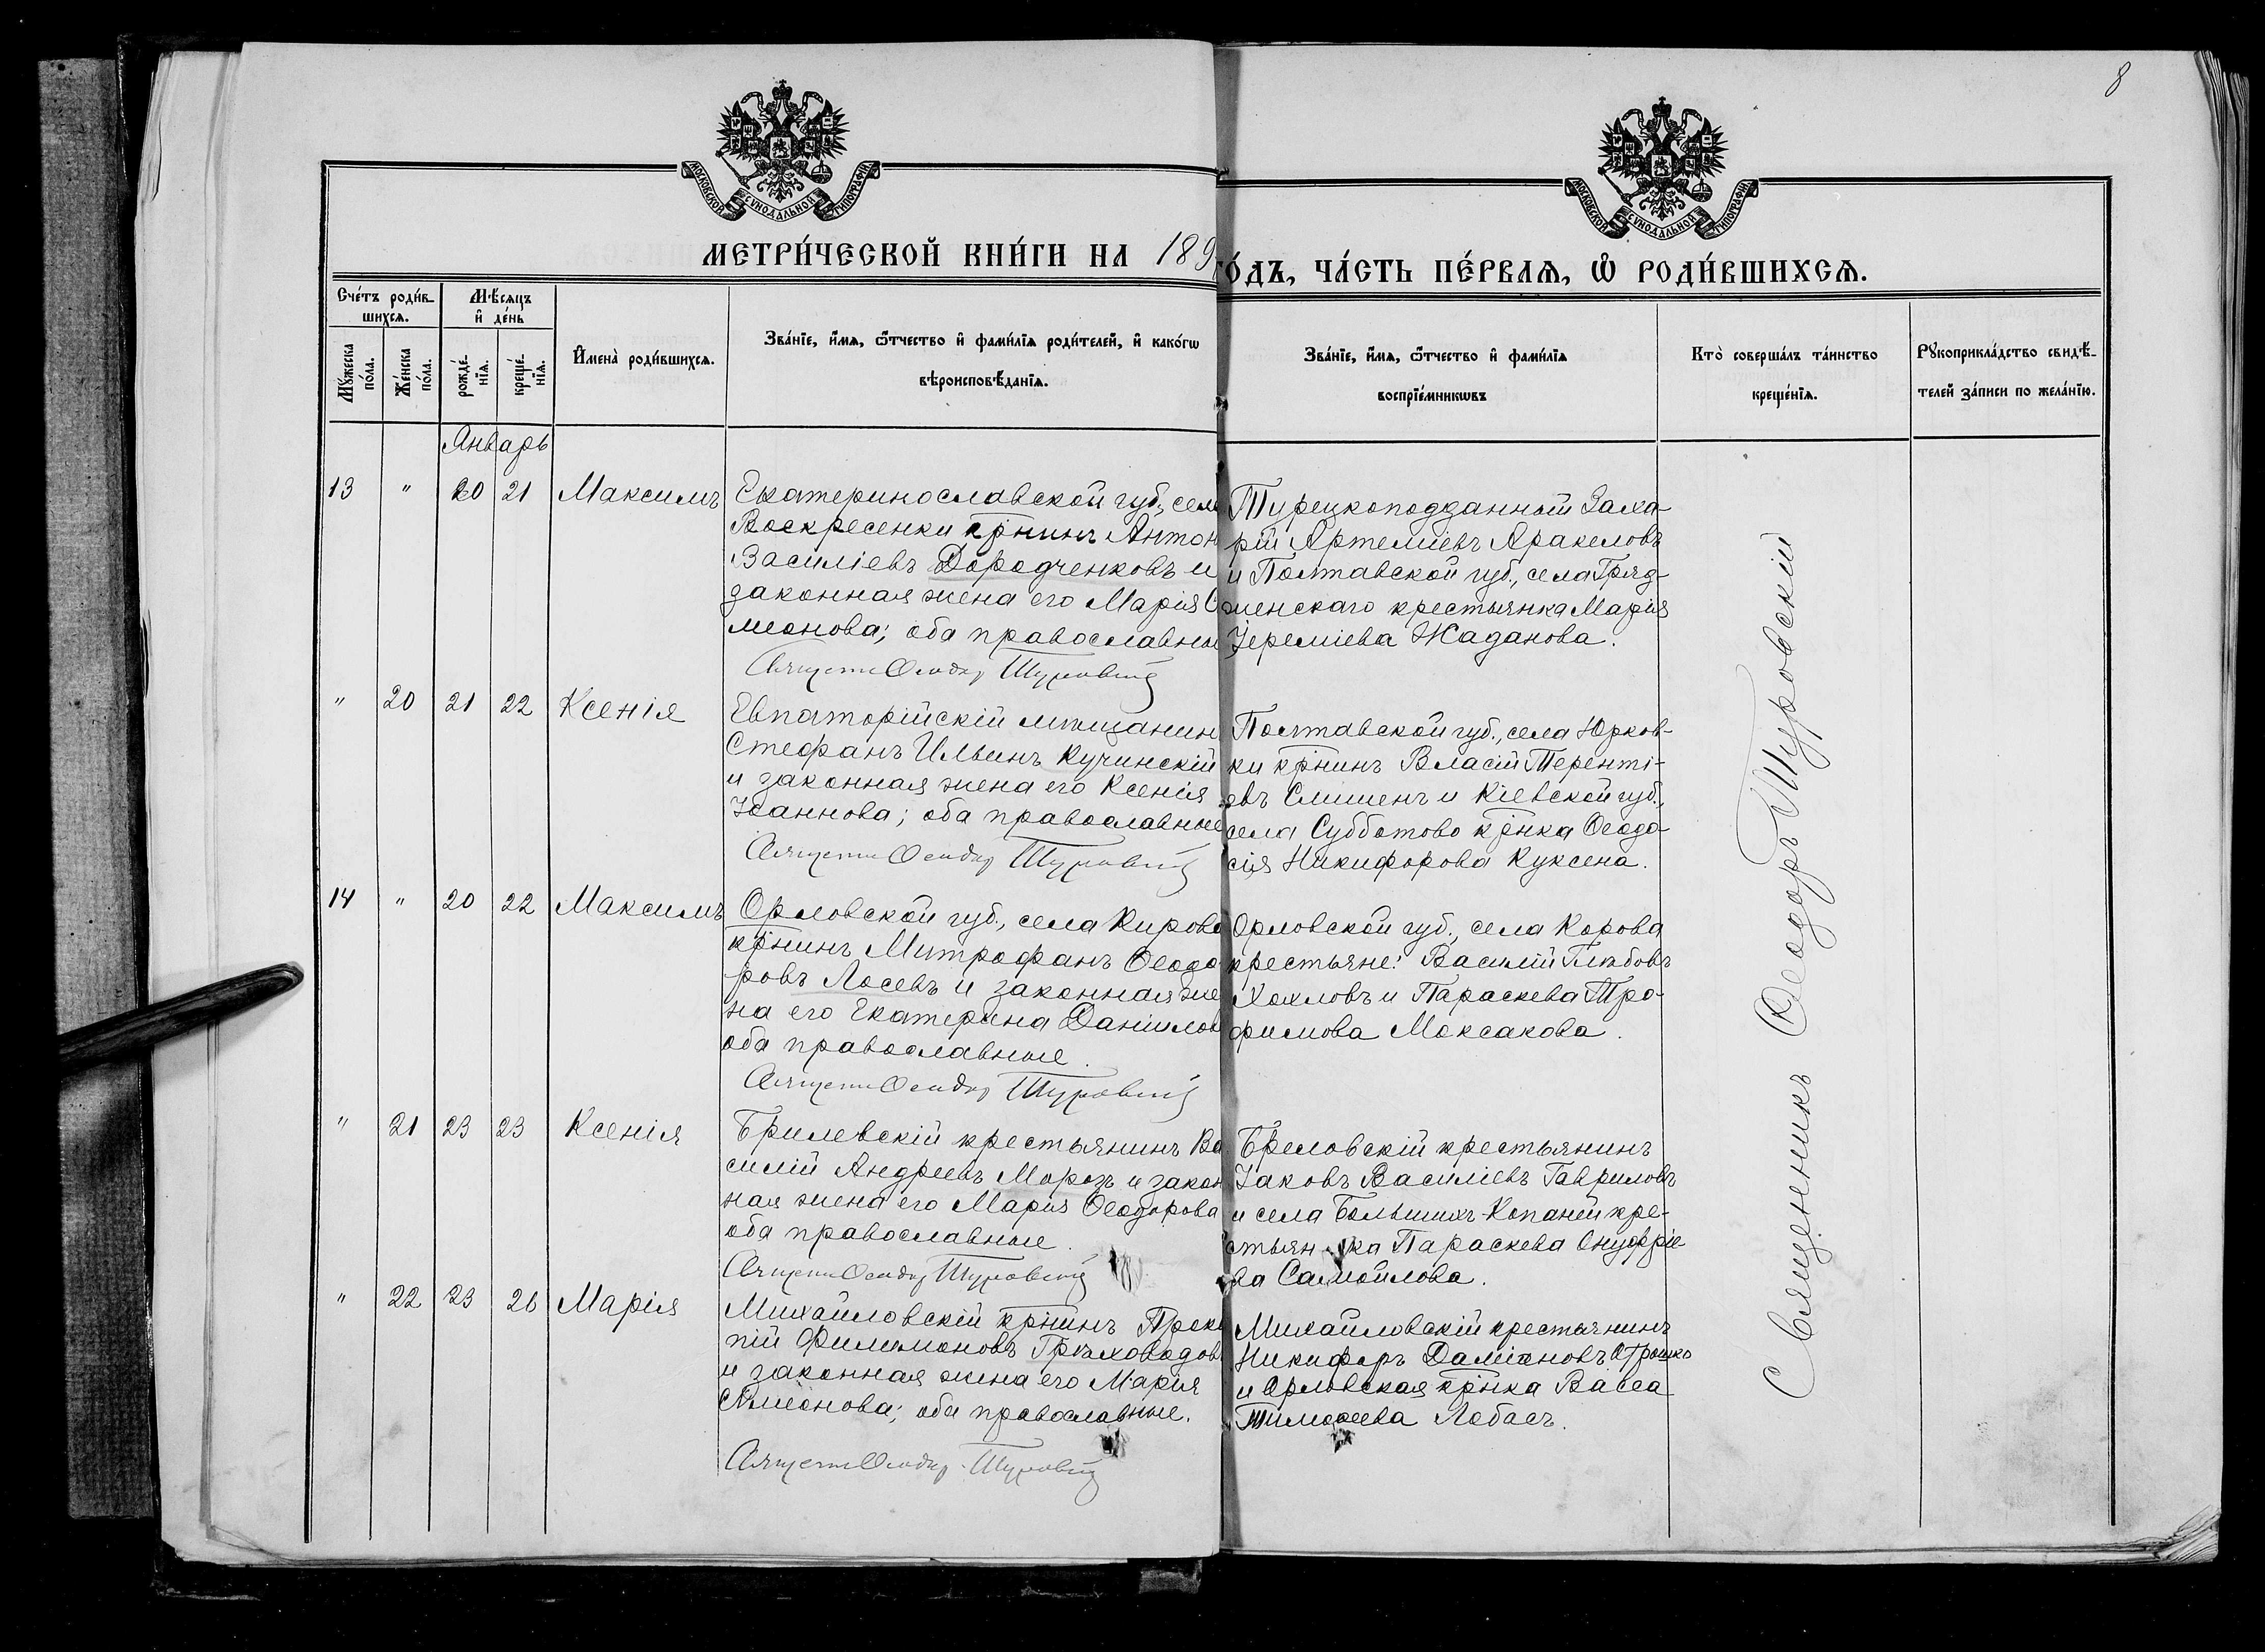 8
МОСКОВСКОЙ СѴНОДАЛЬНОЙ ТИПОГРАФІИ
МОСКОВСКОЙ СѴНОДАЛЬНОЙ ТИПОГРАФІИ
МЕТРИ́ЧЕСКОЙ КНИ́ГИ НА 189
ГО́ДЪ, ЧА́СТЬ ПЕ́РВАѦ, Ѡ҆ РОДИ́ВШИХСѦ.
Сче́тъ роди́в-
шихсѧ.
Мѣ́сяцъ
и҆ де́нь
Мꙋ́жеска
по́ла.
Же́нска
по́ла.
рожде́-
нїѧ.
креще́-
нїѧ.
И҆мена̀ роди́вшихсѧ.
Зва́нїе, и҆́мѧ, ѻ҆́тчество и҆ фами́лїѧ роди́телей, и҆ како́гѡ
вѣроисповѣ́данїѧ.
Зва́нїе, и҆́мѧ, ѻ҆́тчество и҆ фами́лїѧ
воспрїе́мникѡвъ
Кто̀ соверша́лъ та́инство
креще́нїѧ.
Рꙋкоприкла́дство свидѣ́-
телей за́писи по жела́нїю.
Январь
13 " 20 21 Максимъ
Екатеринославской губ., сел
Воскресенки крнинъ Антон
Василіевъ Дородченковъ и
законная жена его Марія С
меонова; оба православны
Священ Ѳеодор Туровскій
Турецкоподданный Заха-
рій Артеміевъ Аракеловъ
и Полтавской губ., села Гряд-
менскаго крестьянка Марія
Іереміева Жаданова.
" 20 21 22 Ксенія
Евпаторійскій мѣщанин
Стефанъ Ильинъ Кучинскій
и законная жена его Ксенія
Іоаннова; оба православные
Священ Ѳеодор Туровскій
Полтавской губ., села Юрков-
ки крнинъ Власій Теренті-
евъ Слишенъ и Кіевской губ.,
села Субботово крнка Ѳеодо-
сія Никифорова Куксена.
14 " 20 22 Максимъ
Орловской губ., села Кирова
крнинъ Митрофанъ Ѳеодо-
ровъ Лосевъ и законная же
на его Екатерина Даніилов
оба православные.
Священ Ѳеодор Туровскій
Орловской губ., села Корова
крестьяне: Василій Глѣбовъ
Хохловъ и Параскева Тро-
фимова Моксакова.
" 21 23 23 Ксенія
Брилевскій крестьянинъ Ва
силій Андреевъ Морозъ и закон
ная жена его Марія Ѳеодорова
оба православные.
Священ Ѳеодор Туровскій
Бреловскій крестьянинъ
Іаковъ Василіевъ Гавриловъ
и села Большихъ-Копаней кре-
стьянка Параскева Онуфріе
ва Самойлова.
" 22 23 26 Марія
Михайловскій крнинъ Проко
пій Филимоновъ Грѣховодов
и законная жена его Марія
Симеонова; оба православные.
Священ Ѳеодор Туровскій
Михайловскій крестьянинъ
Никифоръ Даміановъ Отрошко
и Орловская крнка Васса
Тимоѳеева Лобасъ.
Священникъ Ѳеодоръ Туровскій